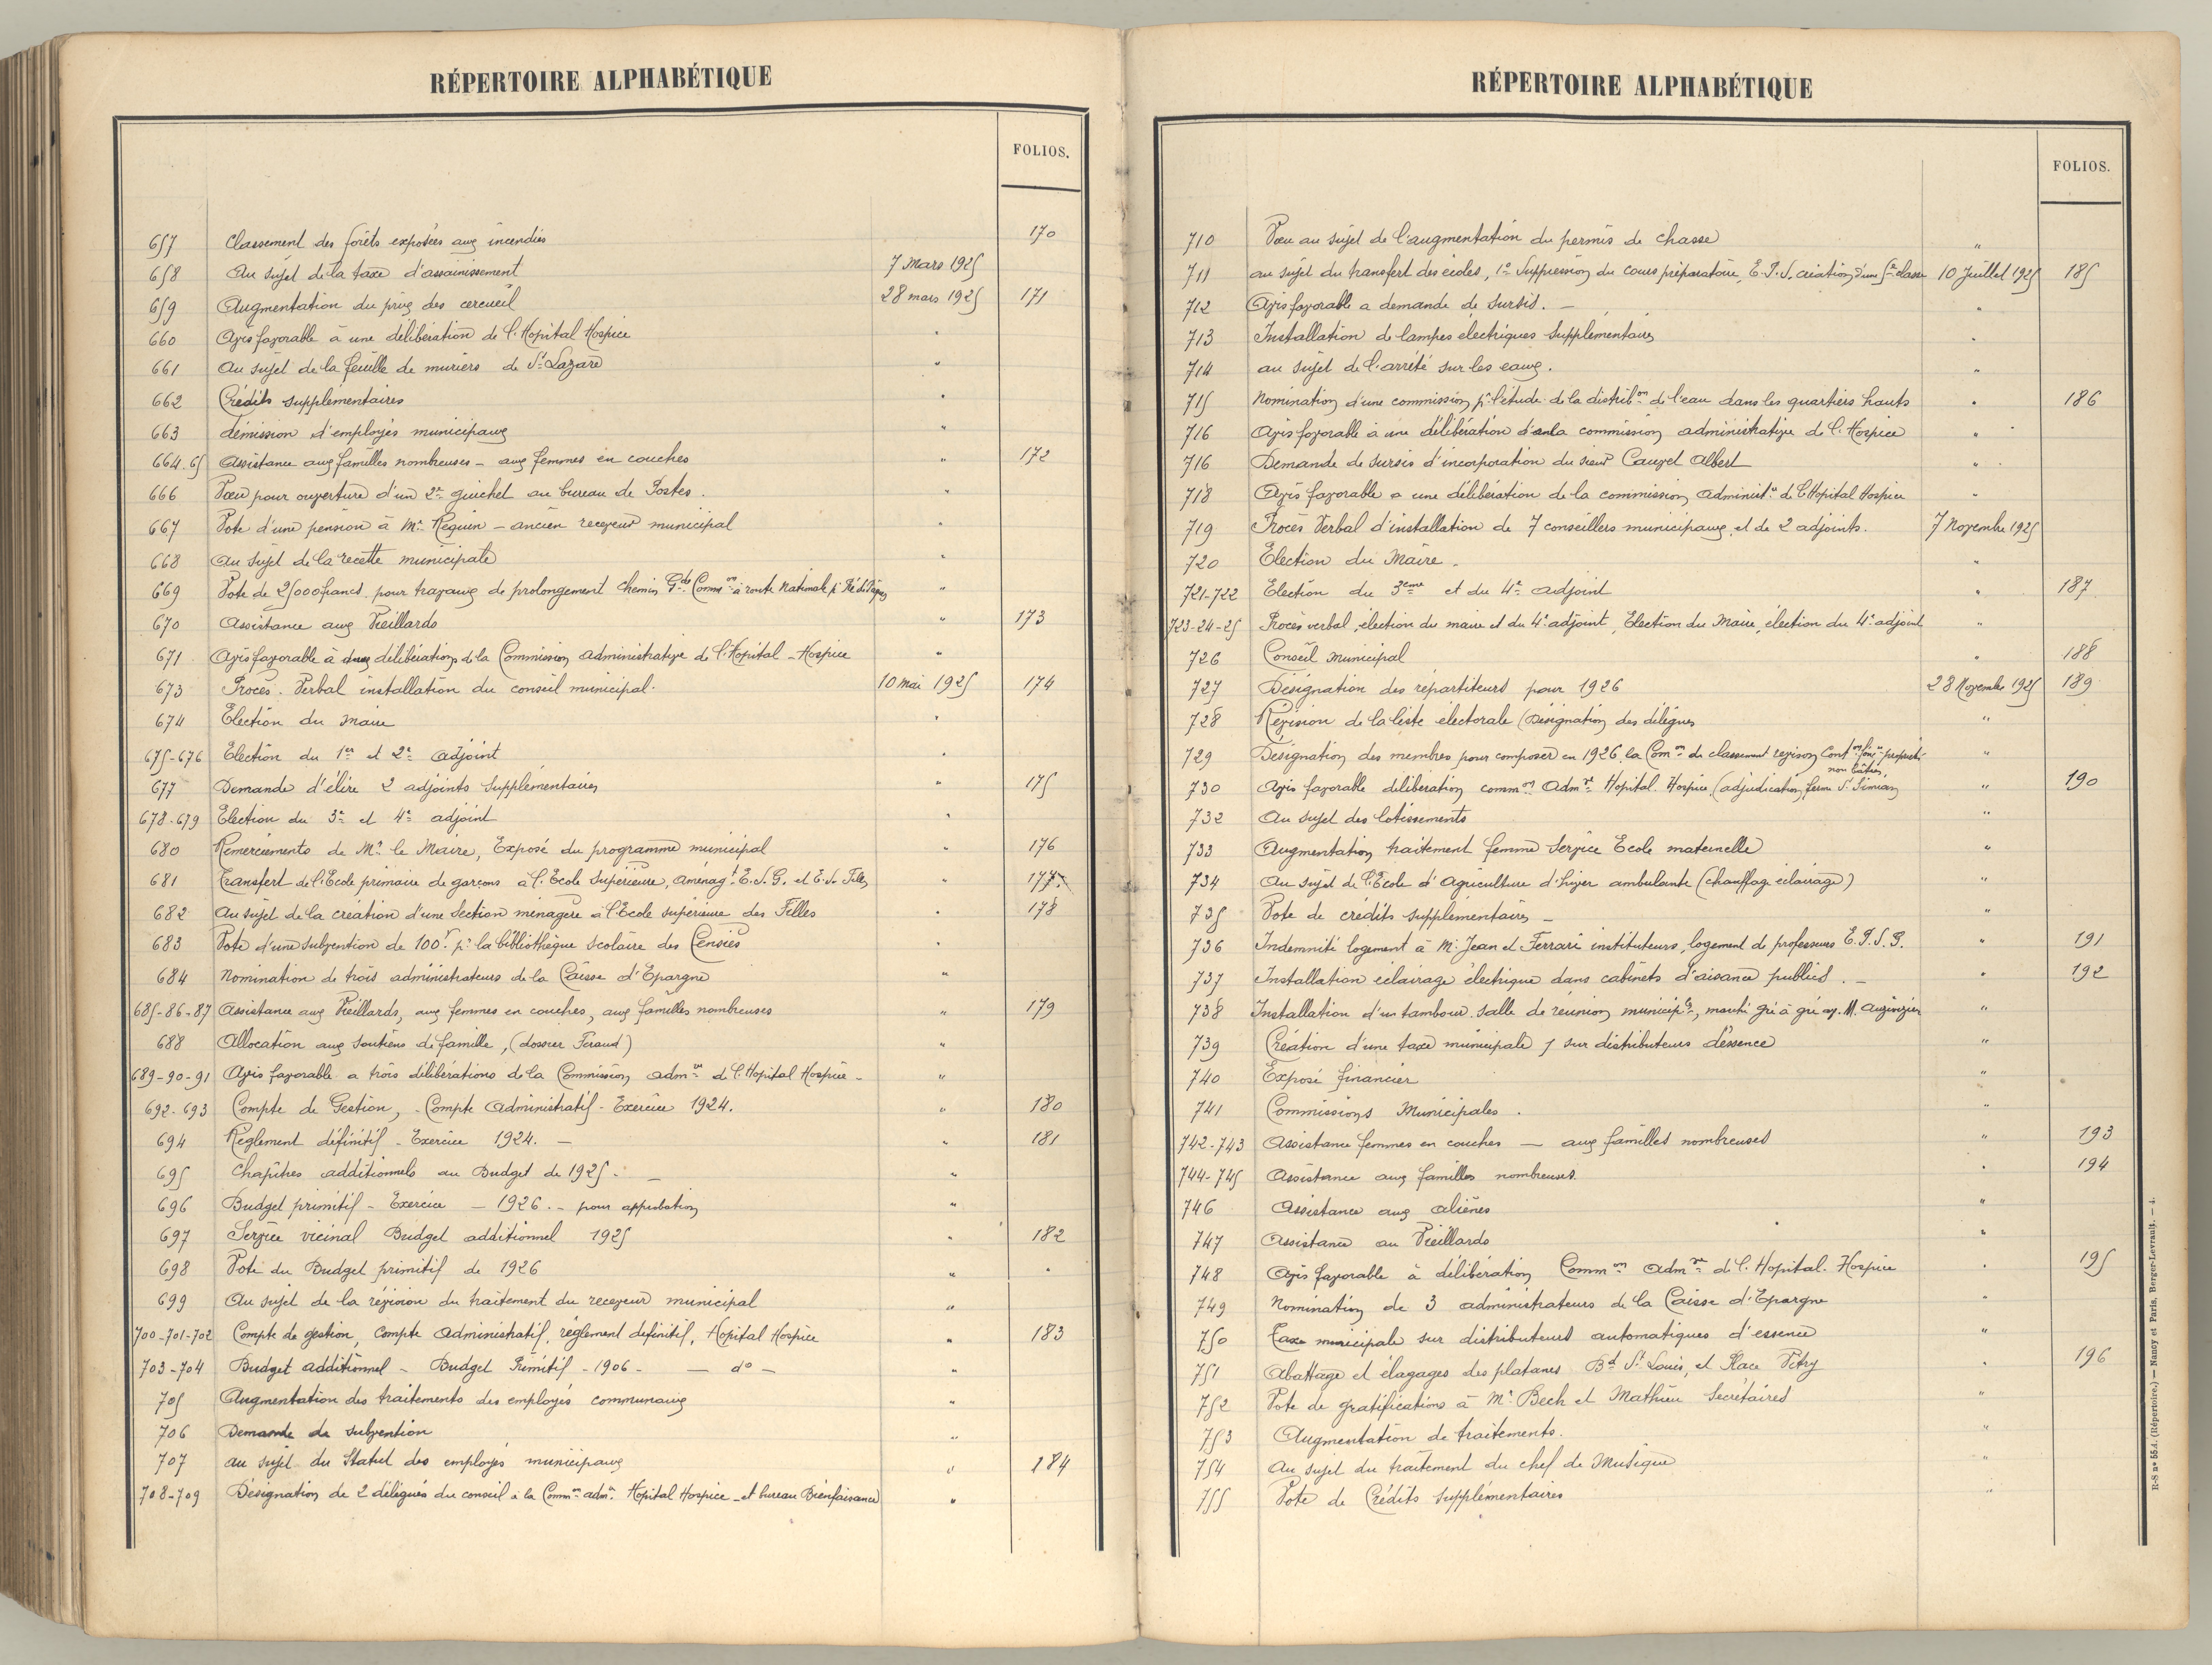 RÉPERTOIRE ALPHABÉTIQUE
FOLIOS.
657 Classement des forêts exposées aux incendies 170
658 Au sujet de la taxe d'assainissement 7 Mars 1925
659 Augmentation du prix des cercueil 28 mars 1925 171
660 Avis favorable à une délibération de l'Hopital Hospice "
661 Au sujet de la feuille de muriers de St Lazare "
662 Crédits supplémentaires "
663 démission d'employés municipaux "
664.65 Assistance aux familles nombreuses - aux femmes en couches " 172
666 Vœu pour ouverture d'un 2e guichet au bureau de Postes. "
667 Vote d'une pension à Mr Reguin - ancien receveur municipal "
668 Au sujet de la recette municipale "
669 Vote de 25000 francs pour travaux de prolongement Chemin Gde Common à route Nationale "
670 Assistance aux Vieillards " 173
671 Avis favorable à deux délibérations de la Commission Administrative de l'Hopital - Hospice "
673 Procès. Verbal installation du conseil municipal. 10 mai 1925 174
674 Election du Maire "
675-676 Election du 1er et 2e adjoint "
677 Demande d'élire 2 adjoints supplémentaires " 175
678-679 Election du 3e et 4e adjoint "
680 Remerciements de Mr le Maire, Exposé du programme municipal " 176
681 Transfert de l'Ecole primaire de garçons à l'Ecole Supérieure, Aménagt E.S.G. et E.S. Filles " 177
682 Au sujet de la création d'une Section ménagère à l'Ecole supérieure des Filles " 178
683 Vote d'une subvention de 100f pr la bibliothèque scolaire des Censiés "
684 Nomination de trois administrateurs de la Caisse d'Epargne "
685-86-87 Assistance aux Vieillards, aux femmes en couches, aux familles nombreuses " 179
688 Allocation aux soutiens de famille, (dossier Feraud) "
689-90-91 Avis favorable a trois délibérations de la Commission admve de l'Hopital Hospice - "
692-693 Compte de Gestion, - Compte Administratif - Exercice 1924. " 180
694 Réglement définitif - Exercice 1924. - " 181
695 Chapîtres additionnels au Budget de 1925 - "
696 Budget primitif - Exercice - 1926. - pour approbation "
697 Service vicinal Budget additionnel 1925 " 182
698 Vote du Budget primitif de 1926 "
699 Au sujet de la révision du traitement du receveur municipal "
700-701-702 Compte de gestion, compte administratif, réglement définitif, Hopital Hospice " 183
703-704 Budget additionnel - Budget Primitif - 1906 - - do - "
705 Augmentation des traitements des employés communaux "
706 Demande de subvention "
707 au sujet du Statut des employés municipaux " 184
708-709 Désignation de 2 délégués du conseil à la Common adve Hopital Hospice - et bureau Bienfaisance "
RÉPERTOIRE ALPHABÉTIQUE
FOLIOS.
710 Vœu au sujet de l'augmentation du permis de chasse "
711 au sujet du transfert des écoles, 1o Suppression du cours préparatoire, E.P.S. création d'une 5e classe 10 Juillet 1925 185
712 Avis favorable a demande de sursis. - "
713 Installation de lampes électriques supplémentaires "
714 au sujet de l'arrêté sur les eaux. "
715 Nomination d'une commission pr l'étude de la distribon de l'eau dans les quartiers hauts " 186
716 Avis favorable à une délibération de la commission administrative de l'Hospice "
716 Demande de sursis d'incorporation du sieur Cauvel Albert "
718 Avis favorable a une délibération de la commission Administve de l'Hopital Hospice "
719 Procès Verbal d'installation de 7 conseillers municipaux, et de 2 adjoints. 7 Novembre 1925
720 Election du Maire. "
721-722 Election du 3eme et du 4e adjoint " 187
723-24-25 Procès verbal, élection du maire et du 4e adjoint, Election du Maire, élection du 4e adjoint "
726 Conseil Municipal " 188
727 Désignation des répartiteurs pour 1926 28 Novembre 1925 189
728 Révision de la liste électorale (Désignation des délégués "
729 Désignation des membres pour composer en 1926 la Comon de classement revision Conton foncre propriétés "
non bâties,
730 Avis favorable délibération common Admve Hopital. Hospice (adjudication ferme St Simian " 190
732 Au sujet des lotissements "
733 Augmentation traitement femme Service Ecole maternelle "
734 Au sujet de l'Ecole d'Agriculture d'hiver ambulante (chauffage éclairage) "
735 Vote de crédits supplémentaires - "
736 Indemnité logement à Mr Jean et Ferrari instituteurs, logement de professeurs E.P.S.G. " 191
737 Installation éclairage électrique dans cabinets d'aisance publics. - " 192
738 Installation d'un tambour salle de réunion municiple, marché gré à gré av. M. "
739 Création d'une taxe municipale / sur distributeurs d'essence "
740 Exposé financier "
741 Commissions Municipales. "
742-743 Assistance femmes en couches - aux familles nombreuses " 193
744-745 Assistance aux familles nombreuses. " 194
746 Assistance aux aliénés "
747 Assistance au Vieillards "
748 Avis favorable à délibération Common Admve de l'Hopital. Hospice " 195
749 Nomination de 3 administrateurs de la Caisse d'Epargne "
750 Taxe municipale sur distributeurs automatiques d'essence "
751 Abattage et élagages des platanes Bd St Louis, et Place Pitry " 196
752 Vote de gratifications à Mr Bech et Mathieu Secrétaires "
753 Augmentation de traitements. "
754 Au sujet du traitement du chef de Musique "
755 Vote de Crédits supplémentaires "
R-S no 554. (Répertoire.) — Nancy et Paris, Berger-Levrault. — 4.